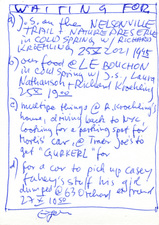 WAITING FOR
a) J.S. on the NELSONVILLE
TRAIL & NATURE PRESERVE
in COLD SPRING w/ RICHARD
KROEHLING 25 X 2021 1425
b) our food @ LE BOUCHON
in COLD SPRING w/ J.S., Laura
Nathanson & Richard Kroehling
25 X 1900
c) multiple things @ R. Kroehling's
house, driving back to NYC,
looking for a parking spot for
car, @ Trader Joe's to
get "GURKERL" for
d) for a car to pick up Casey
stuff his girl
dumped @ 63 Orchard
27 X 1050